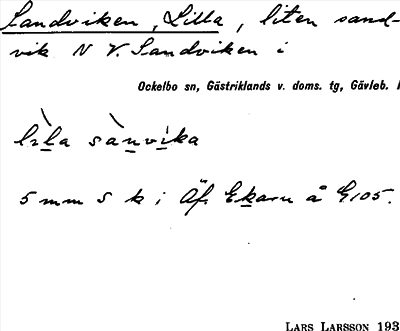 Sandviken, Lilla, liten sand-
vik N V. Sandviken i
Ockelbo sn, Gästriklands v. doms. tg, Gävleb. l
lìla sànvika
5 mm S k i Äfr Ekarn å G105.
LARS LARSSON 193